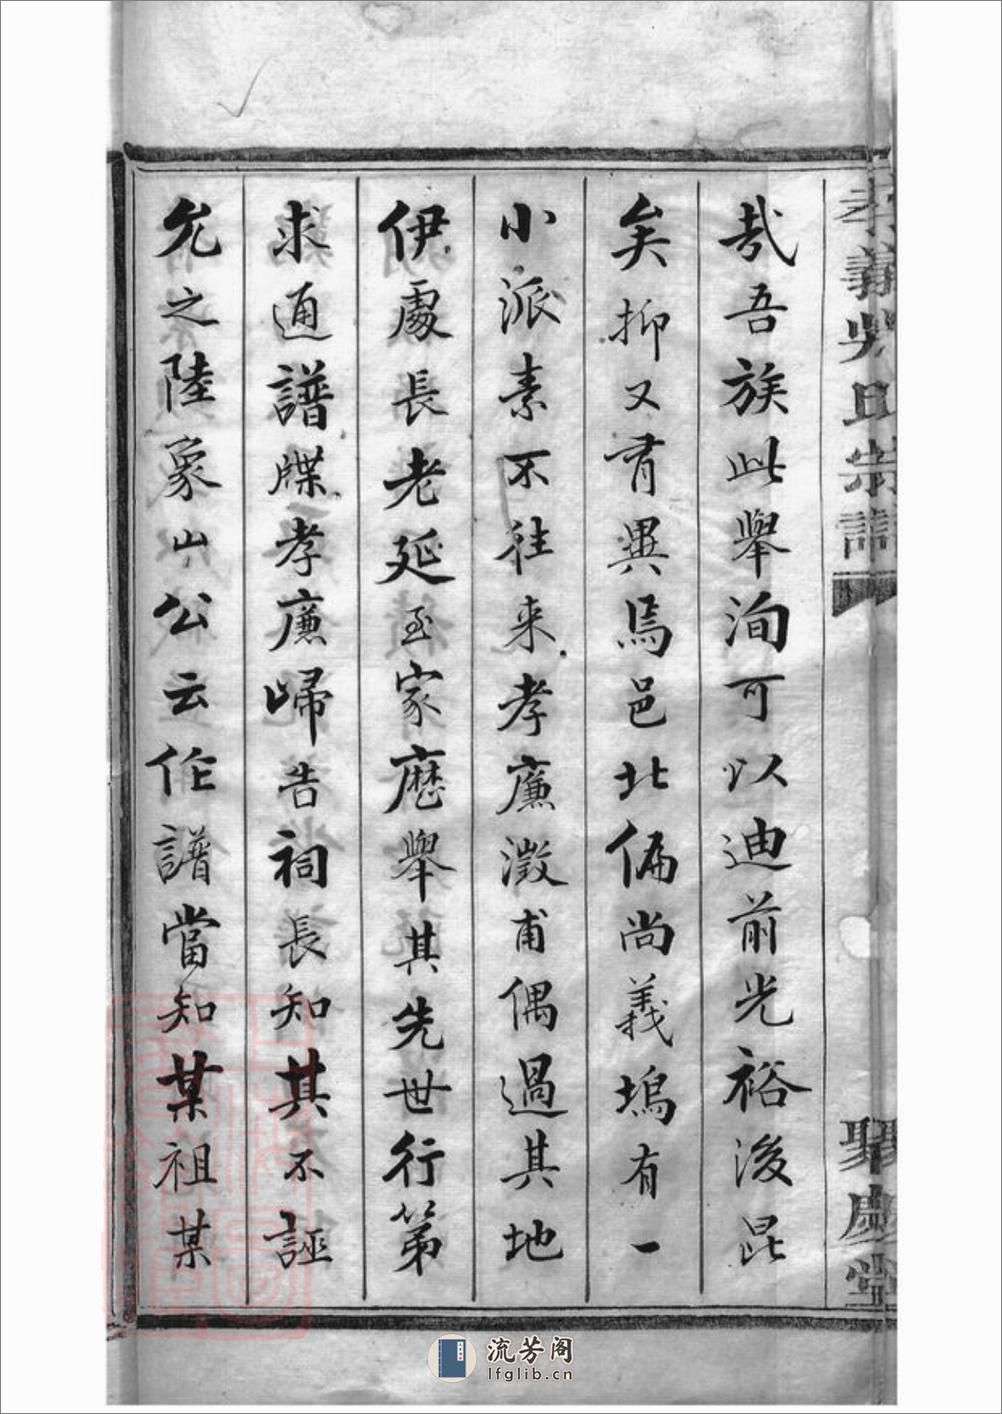 孝義吳氏宗譜
聚慶堂
哉吾族此舉洵可以迪前光裕後昆
矣抑又有異焉邑北偏尚義塢有一
小派素不往来孝廉澂甫偶過其地
伊處長老延至家歷舉其先世行第
求通譜牒孝廉歸告祠長知其不誣
允之陸象山公云作譜當知某祖某
流芳阁
lfglib.cn